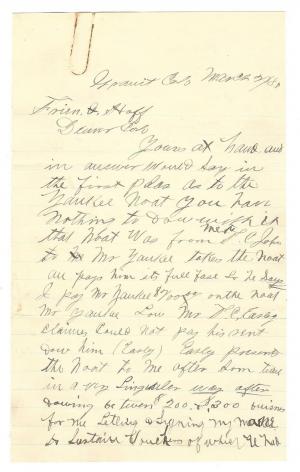 Granit Col March 2/80
Friend Hoff
Dear Sir
Yours at hand and
in answer would say in
the first plas as to the
Yankee Noat you have
Nothing to Dow with it
that Noat Was from me to
Mr Yankee takes the Noat
an pays him its full fase So he Says
I pay Mr Yankee $ on the Noat
Mr Yankee Low Mr Casey
Claimes Could not pay his rent
Dow him (Easly) Easly presents
the Noat to Me after Som time
in a vry Singuler way after
dowing be twen $200. & $300 buisnes
for me Letting & Signing my name
to Sustain Vouchers of which he had